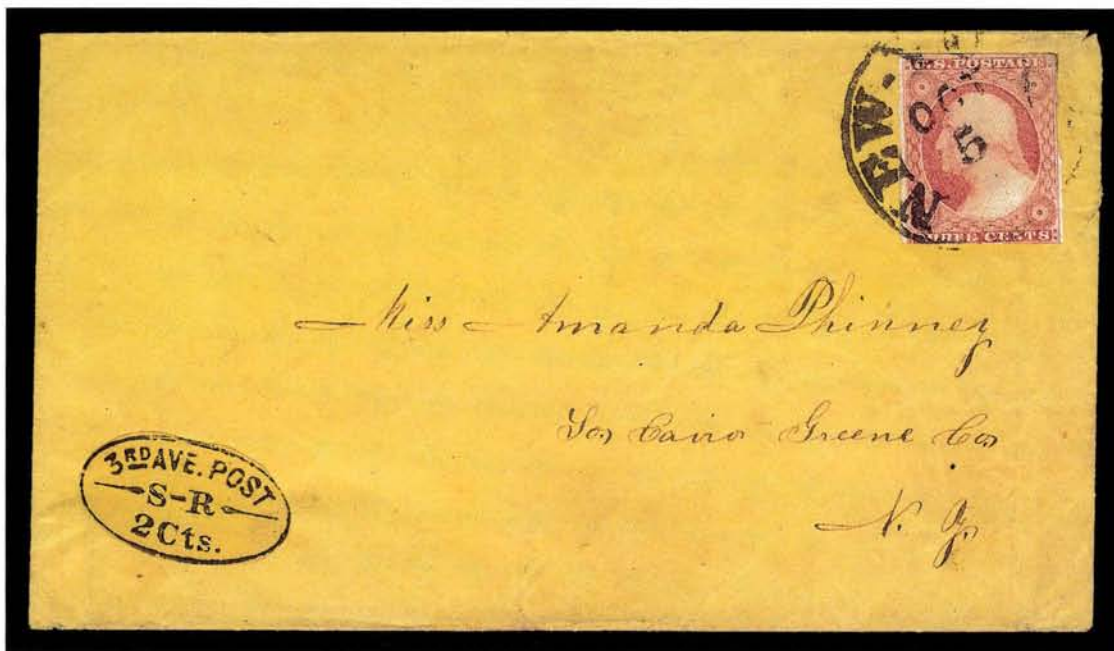 NEW-
OCT
5
U.S. POSTAGE
THREE CENTS
Miss Amanda Phinney
So Cairo Greene Co
N. Y.
3RD AVE. POST
S-R
2 Cts.